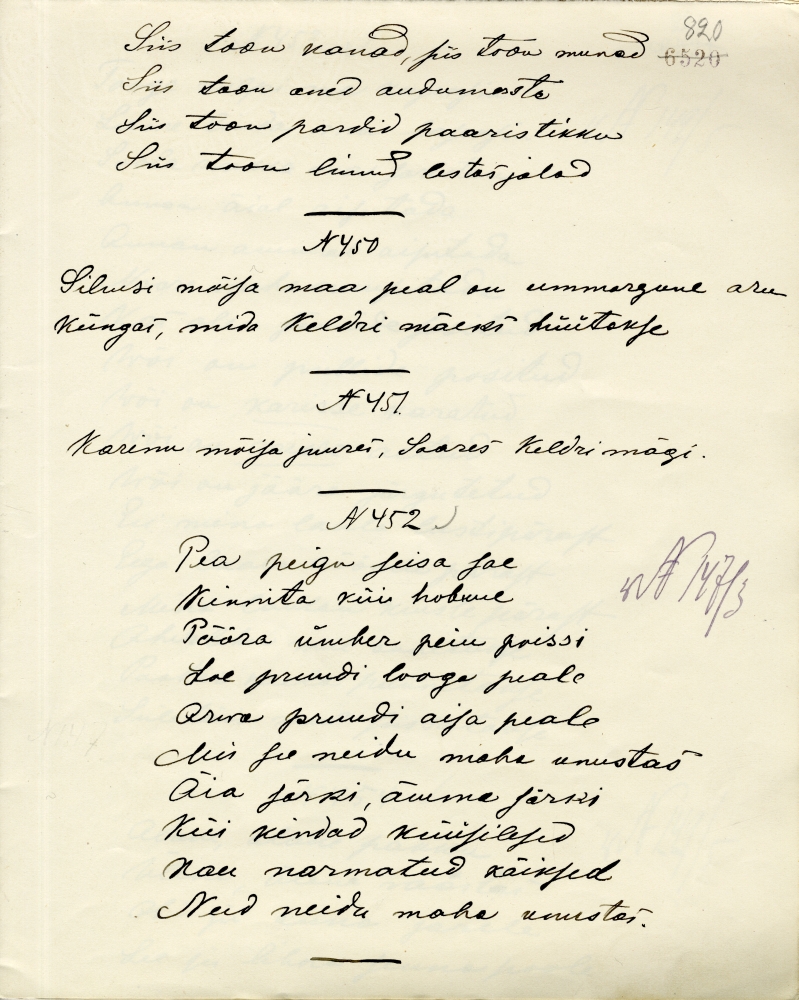 820
6520
Siis toon kanad, siis toon munad
Siis toon aned audumasta
Siis toon pardid paaristikku
Siis toon linnud lestasjalad
N450
Silmsi mõisa maa peal on ummargune aru
küngas, mida Keldri mäeks hüütakse
N451.
Karinu mõisa juures, Saares Keldri mägi.
N452
Pea peigu seisa sae
Kinnita küüi hobune
Pööra ümber peiu poissi
Loe pruudi looga peale
Arwa pruudi aisa peale
Mis se neidu maha unustas
Äia särki, ämma särki
Küi kindad küüsilesed
Kau narmatud käiksed
Need neidu maha unustas.